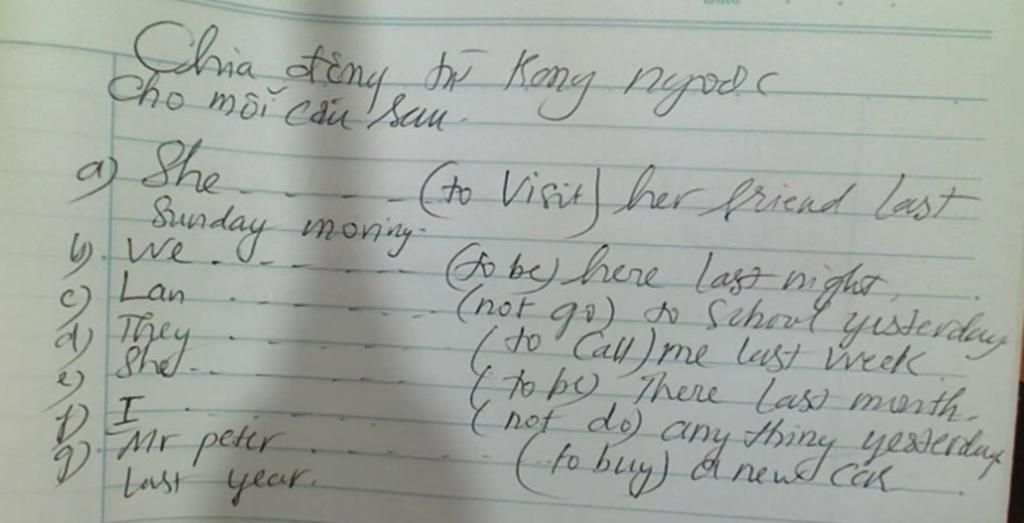 Chia động từ Kong ngoặc
Cho mỗi câu sau.
a) She ------ (to Visit) her friend last
Sunday moring.
b). We ------ (to be) here last night.
c) Lan ------ (not go) to School yesterday
d) They ------ (to Call) me last week.
e) She ------ (to be) There last month.
f) I ------ (not do) any thing yesterday
g). Mr peter ------ (to buy) a new car
Last year.